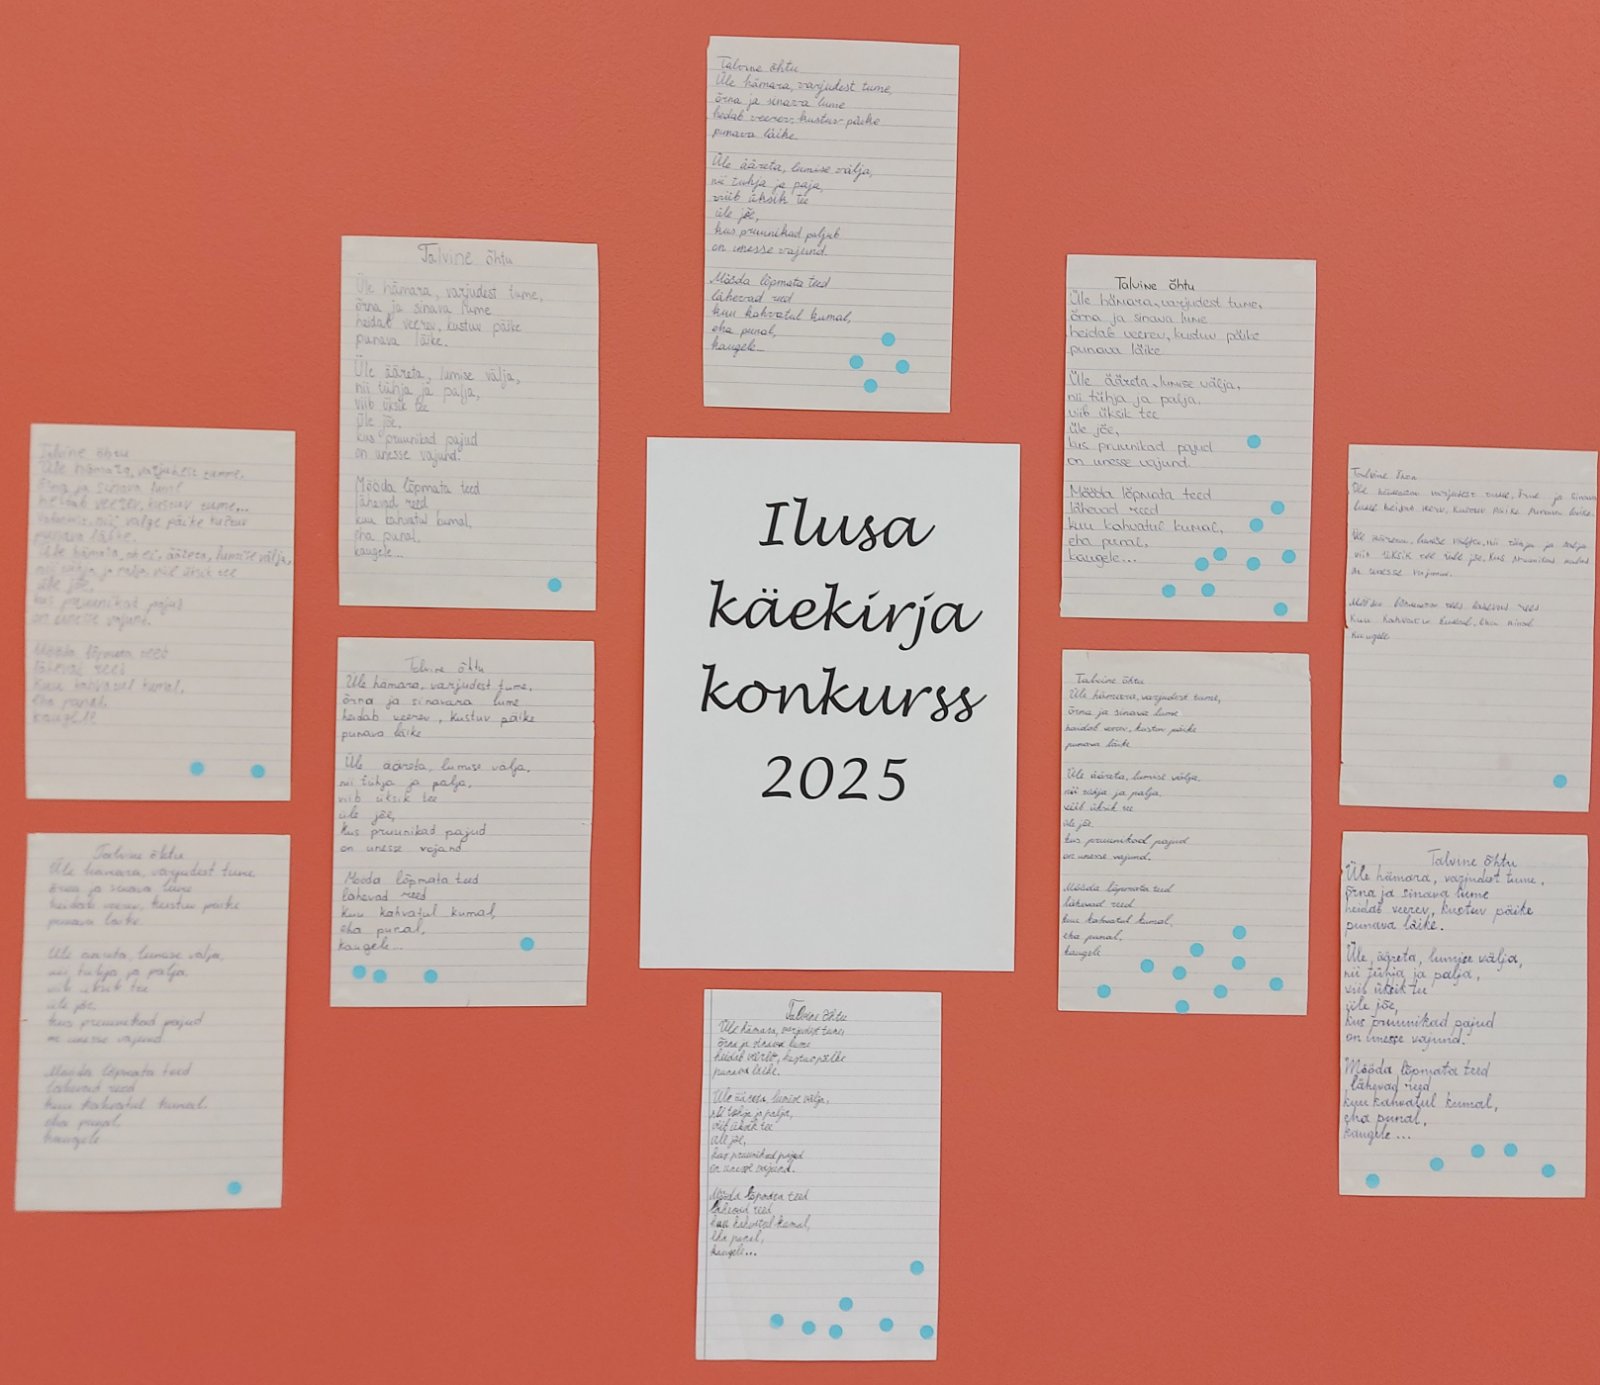 Talvine õhtu
Üle hämara, varjudest tume,
õrna ja sinava lume
heidab veerev, kustuv päike
punava läike.
Üle ääreta, lumise välja,
nii tühja ja paja,
viib üksik tee
üle jõe,
kus pruunikad paljub
on unesse vajund.
Mööda lõpmata teed
lähevad reed
kuu kahvatul kumal,
eha punal,
kaugele...
Talvine õhtu
Üle hämara, varjudest tume,
õrna ja sinava lume
heidab veerev, kustuv päike
punava läike.
Üle ääreta, lumise välja,
nii tühja ja palja,
viib üksik tee
Üle jõe,
kus pruunikad pajud
on unesse vajund.
Mööda lõpmata teed
lähevad reed
kuu kahvatul kumal,
eha punal,
kaugele...
Talvine õhtu
Üle hämara, varjudest tume,
õrna ja sinava lume
heidab veerev, kustuv päike
punava läike
Üle ääreta, lumise välja,
nii tühja ja palja,
viib üksik tee
üle jõe,
kus pruunikad pajud
on unesse vajund.
Mööda lõpmata teed
lähevad reed
kuu kahvatul kumal,
eha punal,
kaugele...
Talvine õhtu
Üle hämara, varjudest tume.
ja sinava
heidab veerev, kustuv tume...
valge päike kustuv
punava läike.
Üle hämara, oh ei, ääreta, lumise välja,
nii tühja ja palja, viib üksik tee
üle jõe,
kus pruunikad pajud
on unesse vajund.
Mööda lõpmata teed
lähevad reed
kuu kahvatul kumal,
eha punal,
Ilusa
käekirja
konkurss
2025
Talvine
Üle varjudest tume, ja sinava
lume heidab veerev, kustuv päike punava läike.
Üle ääreta, lumise välja, nii tühja ja palja
viib üksik tee üle jõe, kus pruunikad
on unesse vajund.
Mööda teed lähevad reed
kuu kahvatul kumal, eha
kaugele
Talvine õhtu
Üle hämara, varjudest tume,
õrna ja sinavara lume
heidab veerev, kustuv päike
punava läike
Üle ääreta, lumise välja,
nii tühja ja palja,
viib üksik tee
üle jõe,
kus pruunikad pajud
on unesse vajand
Mööda lõpmata teed
lähevad reed
kuu kahvatul kumal,
eha punal,
kaugele...
Talvine õhtu
Üle hämara, varjudest tume,
õrna ja sinava lume
heidab veerev, kustuv päike
punava läike
Üle ääreta, lumise välja
nii tühja ja palja,
viib üksik tee
üle jõe
kus pruunikad pajud
on unesse vajund.
Mööda lõpmata teed
lähevad reed
kuu kahvatul kumal,
eha punal,
kaugele
Talvine õhtu
Üle hämara, varjudest tume
õrna ja sinava lume
heidab veerev, kustuv päike
punava läike.
Üle ääreta, lumise välja,
nii tühja ja palja
viib üksik tee
üle jõe,
kus pruunikad pajud
on unesse vajund
Mööda lõpmata teed
lähevad reed
kuu kahvatul kumal.
eha punal.
kaugele
Talvine õhtu
Üle hämara, varjudest tume,
õrna ja sinava lume
heidab veerev, kustuv päike
punava läike.
Üle, ääreta, lumise välja,
nii tühja ja palja,
viib üksik tee
üle jõe,
kus pruunikad pajud
on unesse vajund.
Mööda lõpmata teed
lähevad reed
kuu kahvatul kumal,
eha punal,
kaugele...
Talvine õhtu
Üle hämara, varjudest tume,
õrna ja sinava lume
heidab kustuv päike
punava läike.
Üle ääreta, lumise välja,
nii tühja ja palja,
viib üksik tee
üle jõe,
kus pruunikad pajud
on unesse vajund.
Mööda lõpmata teed
lähevad reed
kuu kahvatul kumal,
eha punal,
kaugele...